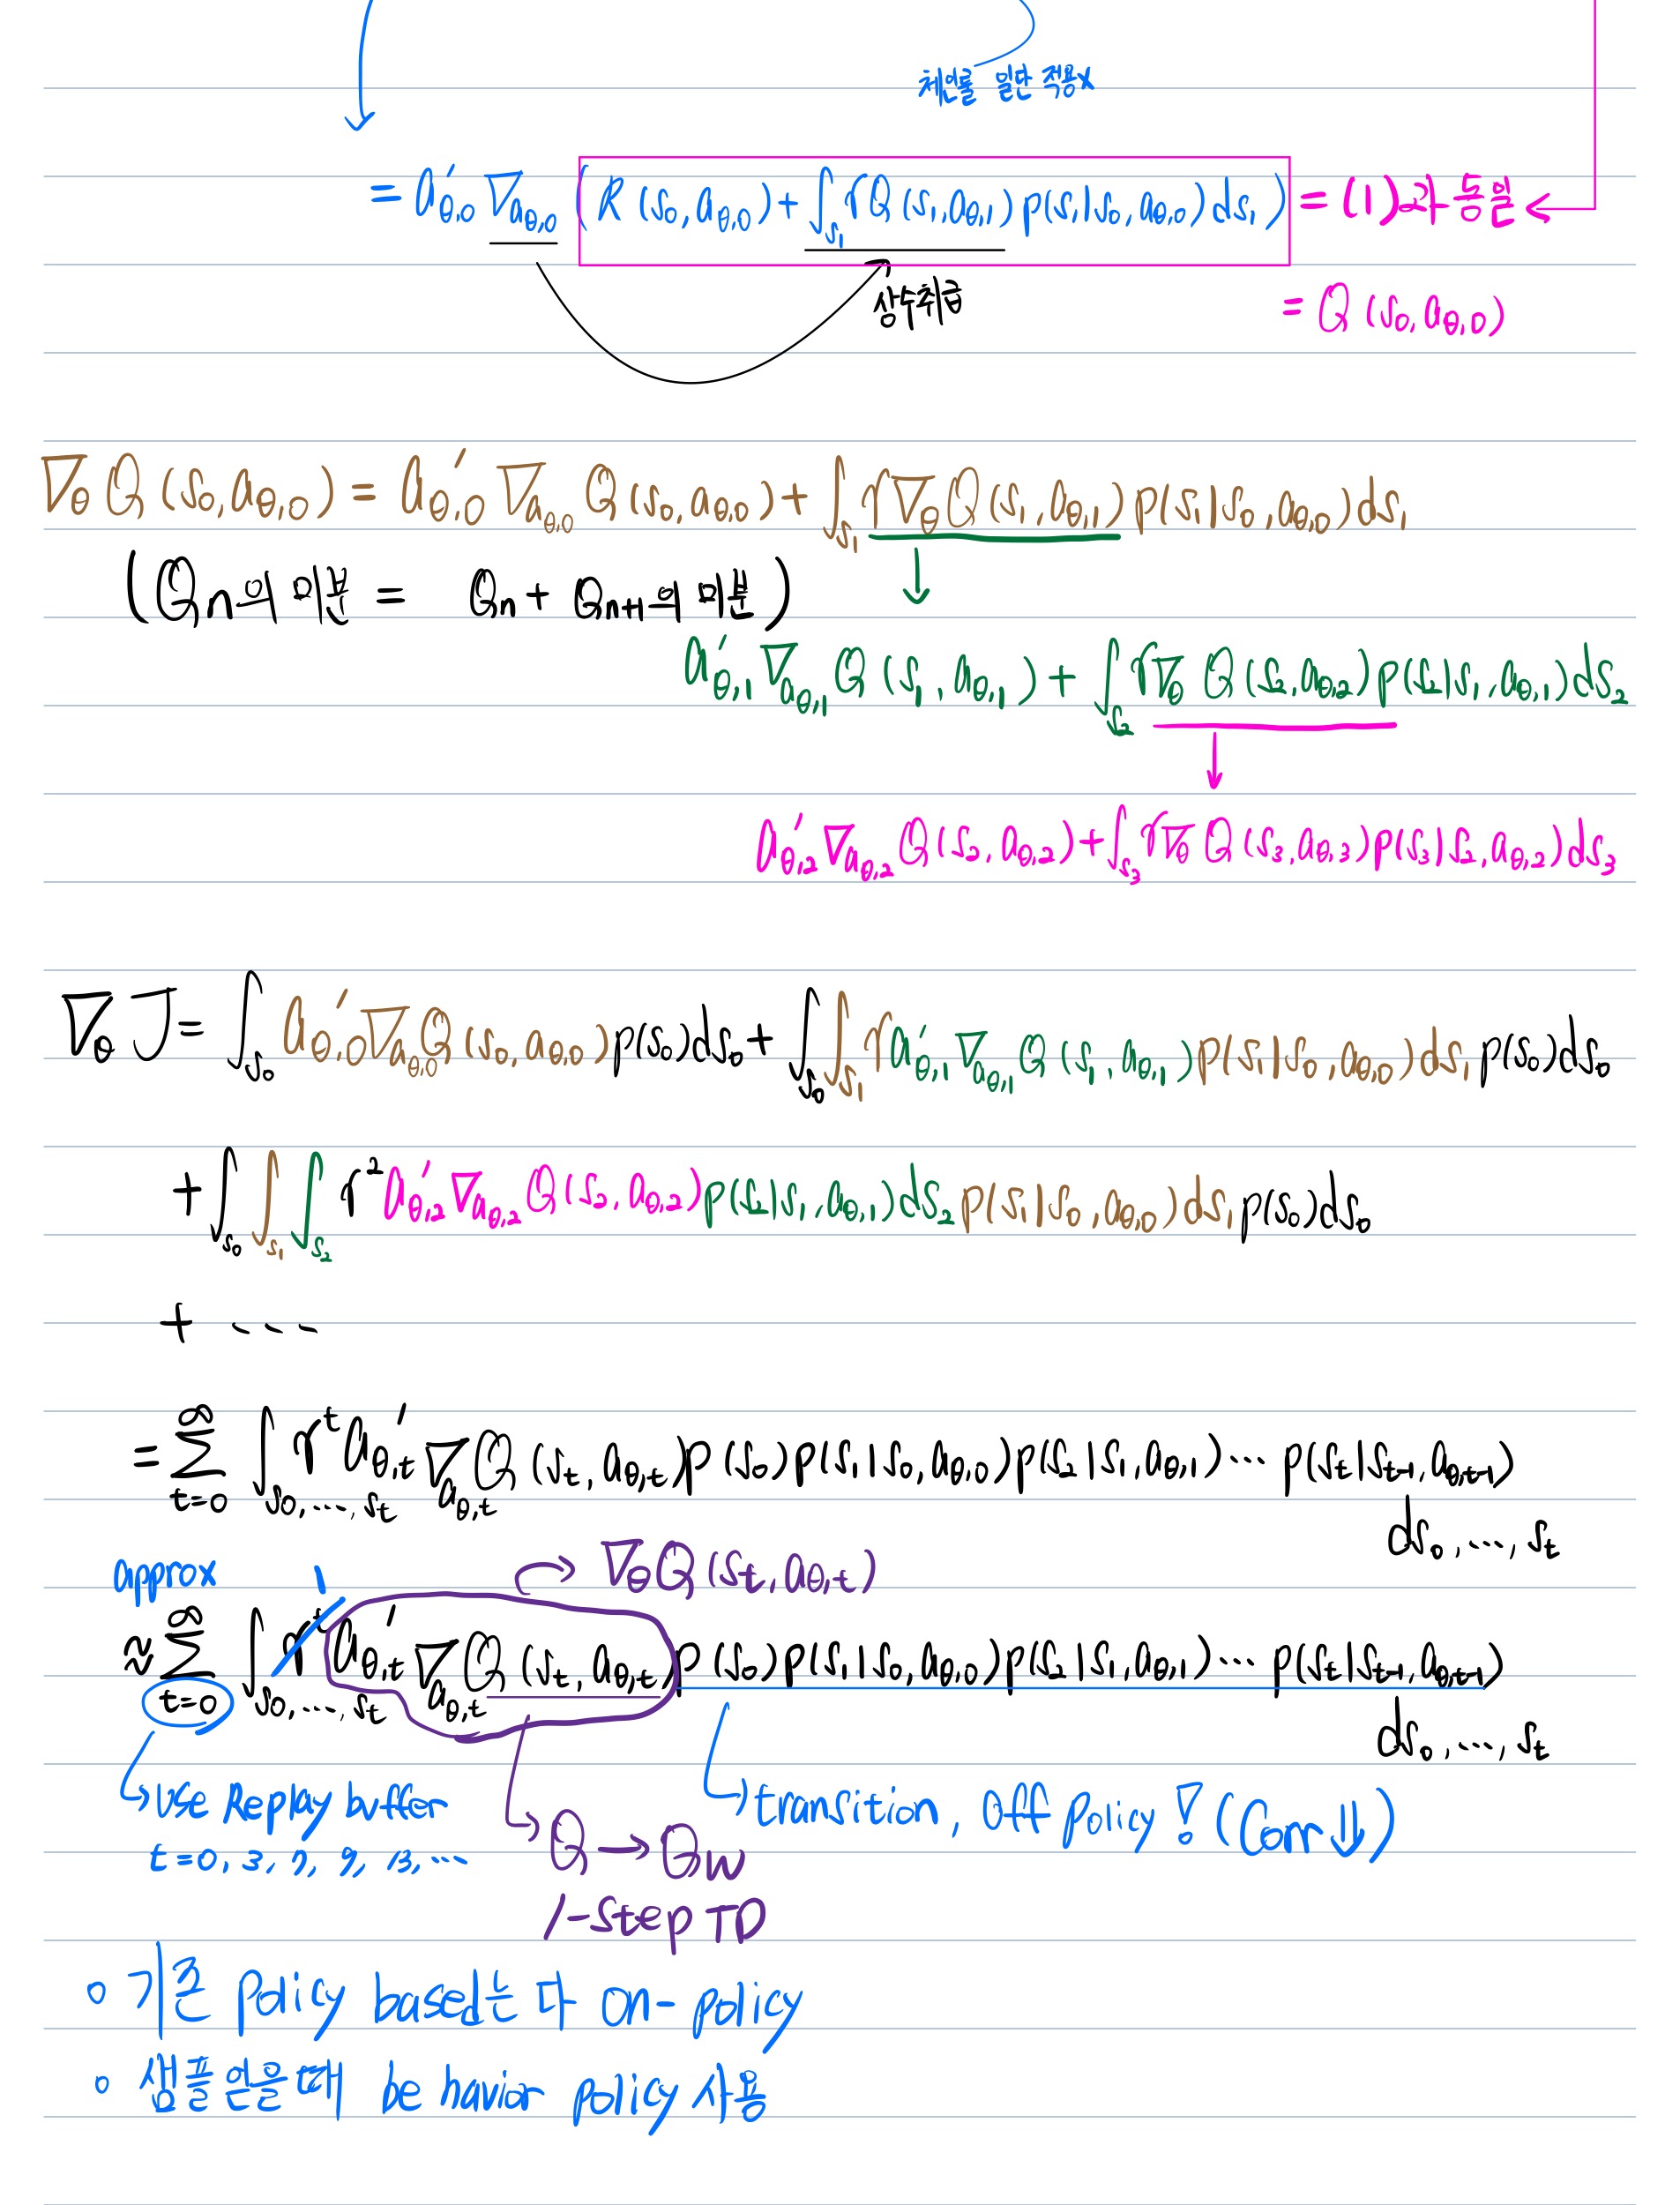 체인룰 일단 적용x
= a'θ,0 ∇aθ,0 (R(s0, aθ,0) + ∫s1 γQ(s1, aθ,1) p(s1|s0, aθ,0) ds1) = (1)과 동일
상수취급
= Q(s0, aθ,0)
∇θ Q(s0, aθ,0) = a'θ,0 ∇aθ,0 Q(s0, aθ,0) + ∫s1 γ∇θ Q(s1, aθ,1) p(s1|s0, aθ,0) ds1
(Qn의 미분 = Qn + Qn+1의 미분)
a'θ,1 ∇aθ,1 Q(s1, aθ,1) + ∫s2 γ∇θ Q(s2, aθ,2) p(s2|s1, aθ,1) ds2
a'θ,2 ∇aθ,2 Q(s2, aθ,2) + ∫s3 γ∇θ Q(s3, aθ,3) p(s3|s2, aθ,2) ds3
∇θ J = ∫s0 a'θ,0 ∇aθ,0 Q(s0, aθ,0) p(s0) ds0 + ∫s0 ∫s1 γ a'θ,1 ∇aθ,1 Q(s1, aθ,1) p(s1|s0, aθ,0) ds1 p(s0) ds0
+ ∫s0 ∫s1 ∫s2 γ² a'θ,2 ∇aθ,2 Q(s2, aθ,2) p(s2|s1, aθ,1) ds2 p(s1|s0, aθ,0) ds1 p(s0) ds0
+ ...
= ∑t=0^∞ ∫s0,...,st γ^t a'θ,t ∇aθ,t Q(st, aθ,t) p(s0) p(s1|s0, aθ,0) p(s2|s1, aθ,1) ... p(st|st-1, aθ,t-1)
ds0, ..., st
approx 1 → ∇θ Q(st, aθ,t)
≈ ∑t=0^∞ ∫s0,...,st γ^t a'θ,t ∇aθ,t Q(st, aθ,t) p(s0) p(s1|s0, aθ,0) p(s2|s1, aθ,1) ... p(st|st-1, aθ,t-1)
ds0, ..., st
use Replay buffer
t=0, 3, 7, 9, 13, ...
Q → Qw
1-step TD
transition, Off policy! (Corr ⇓)
◦ 기존 policy based는 다 on-policy
◦ 샘플얻을때 behavior policy 사용